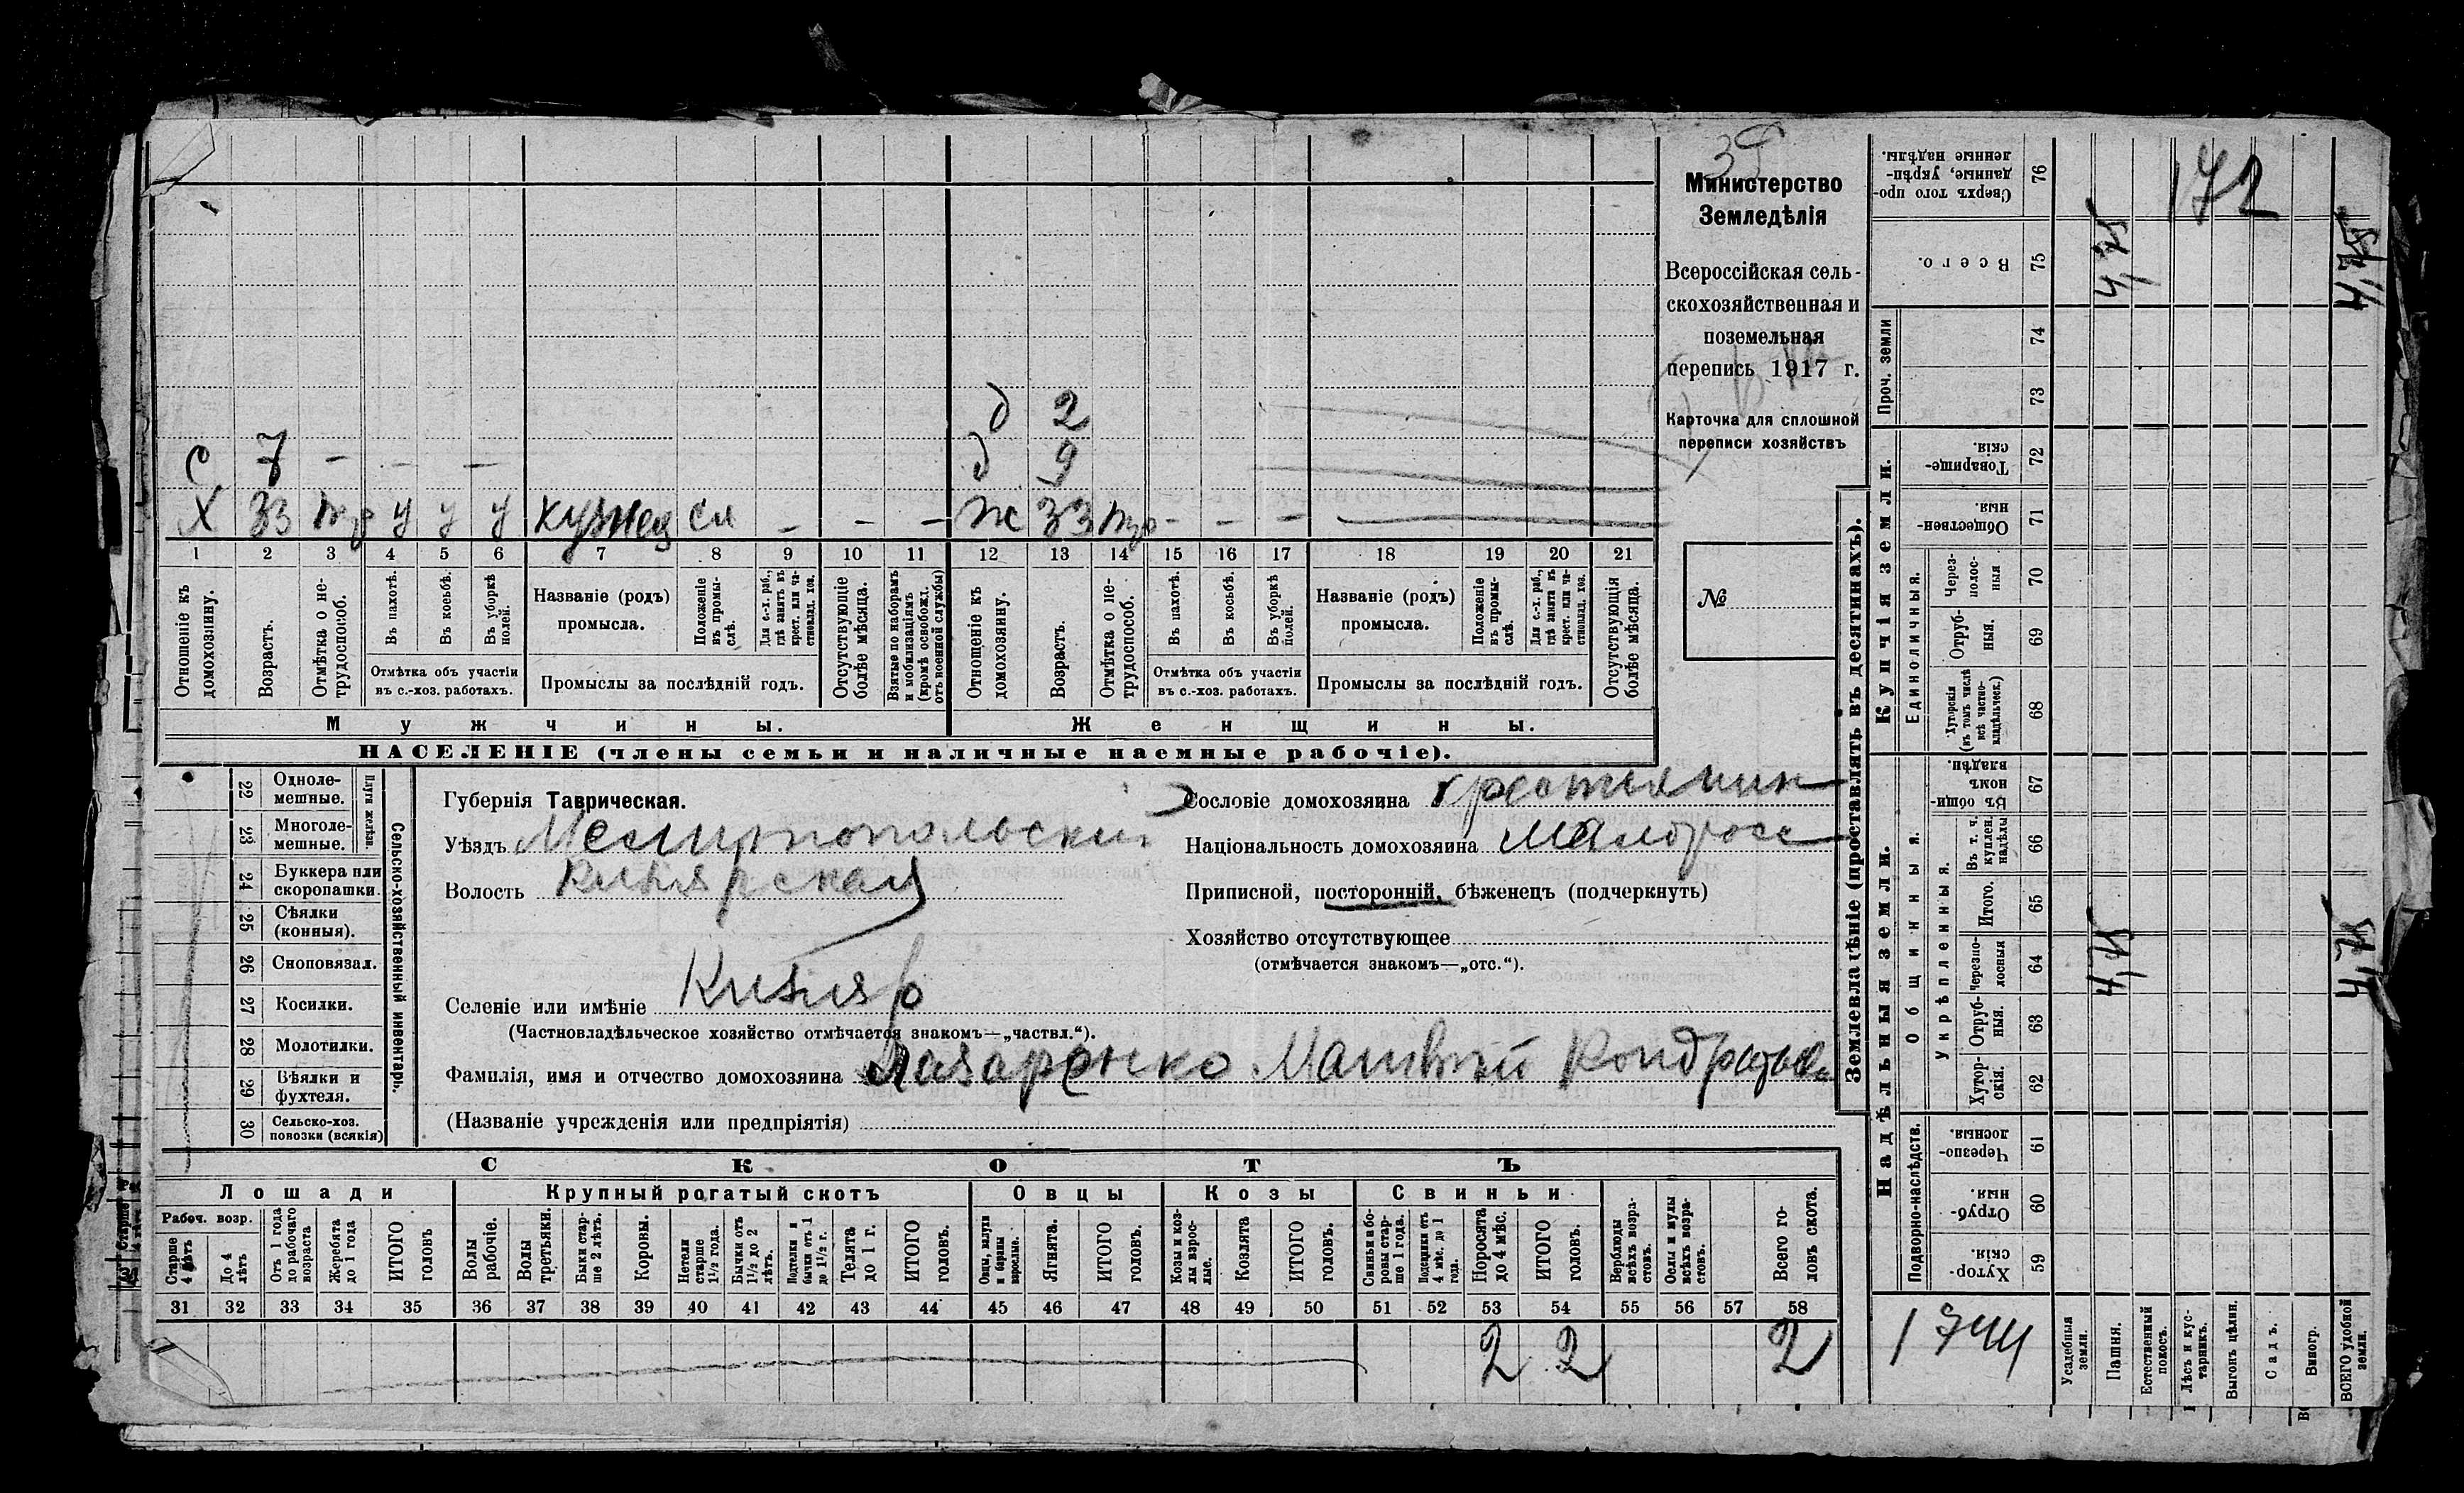 39
Министерство
Земледѣлія
Всероссійская сель-
скохозяйственная и
поземельная
перепись 1917 г.
Карточка для сплошной
переписи хозяйствъ
№
д 2
с 7 - - - д 9
х 33 тр у у у кузнец сл - - - ж 33 тр - - -
1 2 3 4 5 6 7 8 9 10 11 12 13 14 15 16 17 18 19 20 21
Отношеніе къ домохозяину.
Возрастъ.
Отмѣтка о не-трудоспособ.
Въ пахотѣ.
Въ косьбѣ.
Въ уборкѣ полей.
Отмѣтка объ участіи
въ с.-хоз. работахъ.
Названіе (родъ)
промысла.
Положеніе въ промы-слѣ.
Для с.-х. раб., гдѣ занятъ въ крест. или ча-стновлад. хоз.
Промыслы за послѣдній годъ.
Отсутствующіе болѣе мѣсяца.
Взятые по наборамъ и мобилизаціямъ (кромѣ освобожд. отъ военной службы)
Отношеніе къ домохозяину.
Возрастъ.
Отмѣтка о не-трудоспособ.
Въ пахотѣ.
Въ косьбѣ.
Въ уборкѣ полей.
Отмѣтка объ участіи
въ с.-хоз. работахъ.
Названіе (родъ)
промысла.
Положеніе въ промы-слѣ.
Для с.-х. раб., гдѣ занята въ крест. или ча-стновлад. хоз.
Промыслы за послѣдній годъ.
Отсутствующія болѣе мѣсяца.
Мужчины.
Женщины.
НАСЕЛЕНІЕ (члены семьи и наличные наемные рабочіе).
Сельско-хозяйственный инвентарь.
Плуги желѣзн.
22 Одноле-мешные.
23 Многоле-мешные.
24 Буккера или скоропашки.
25 Сѣялки (конныя).
26 Сноповязал.
27 Косилки.
28 Молотилки.
29 Вѣялки и фухтеля.
30 Сельско-хоз. повозки (всякія)
Губернія Таврическая.
Уѣздъ Мелитопольский
Волость Кизиярская
Селеніе или имѣніе Кизияр
(Частновладѣльческое хозяйство отмѣчается знакомъ—„частвл.“).
Фамилія, имя и отчество домохозяина Лазаренко Матвѣй Кондратьев
(Названіе учрежденія или предпріятія)
Сословіе домохозяина крестьянин
Національность домохозяина малоросс
Приписной, посторонній, бѣженецъ (подчеркнуть)
Хозяйство отсутствующее
(отмѣчается знакомъ—„отс.“).
СКОТЪ
Лошади
Крупный рогатый скотъ
Овцы
Козы
Свиньи
Рабоч. возр.
Старше 4 лѣтъ
До 4 лѣтъ
Отъ 1 года до рабочаго возраста
Жеребята до 1 года
ИТОГО головъ
Волы рабочіе.
Волы третьяки.
Быки стар-ше 2 лѣтъ.
Коровы.
Нетели старше 1½ года.
Бычки отъ 1½ до 2 лѣтъ.
Подтелки и бычки отъ 1 до 1½ г.
Телята до 1 г.
ИТОГО головъ.
Овцы, валухи и бараны взрослые.
Ягнята.
ИТОГО головъ.
Козы и коз-лы взрос-лые.
Козлята
ИТОГО головъ.
Свиньи и бо-ровы стар-ше 1 года.
Подсвинки отъ 4 мѣс. до 1 года.
Поросята до 4 мѣс.
ИТОГО головъ.
Верблюды всѣхъ возра-стовъ.
Ослы и мулы всѣхъ возра-стовъ.
Всего го-ловъ скота.
31 32 33 34 35 36 37 38 39 40 41 42 43 44 45 46 47 48 49 50 51 52 53 54 55 56 57 58
2 2 2
Землевладѣніе (проставлять въ десятинахъ).
Купчія земли.
Надѣльныя земли.
Сверхъ того про-данные, укрѣп-ленные надѣлы. 76
Всего. 75
Проч. земли
74
73
Товарище-скія. 72
Обществен-ныя. 71
Единоличныя.
Через-полос-ныя 70
Отруб-ныя. 69
Хуторскія (въ томъ числѣ всѣ частно-владѣльческ.) 68
Общинныя.
Въ общин-номъ владѣн. 67
Укрѣпленныя.
Въ т. ч. куплен. надѣлы 66
Итого. 65
Черезпо-лосныя 64
Отруб-ныя. 63
Хутор-скія. 62
Подворно-наслѣдств.
Черезпо-лосныя. 61
Отруб-ныя. 60
Хутор-скія. 59
172
4,75
4,75
4,75
4,75
1744
Усадебныя земли.
Пашня.
Естественный покосъ.
Лѣсъ и кус-тарникъ.
Выгонъ цѣлин.
Садъ.
Виногр.
ВСЕГО удобной земли.